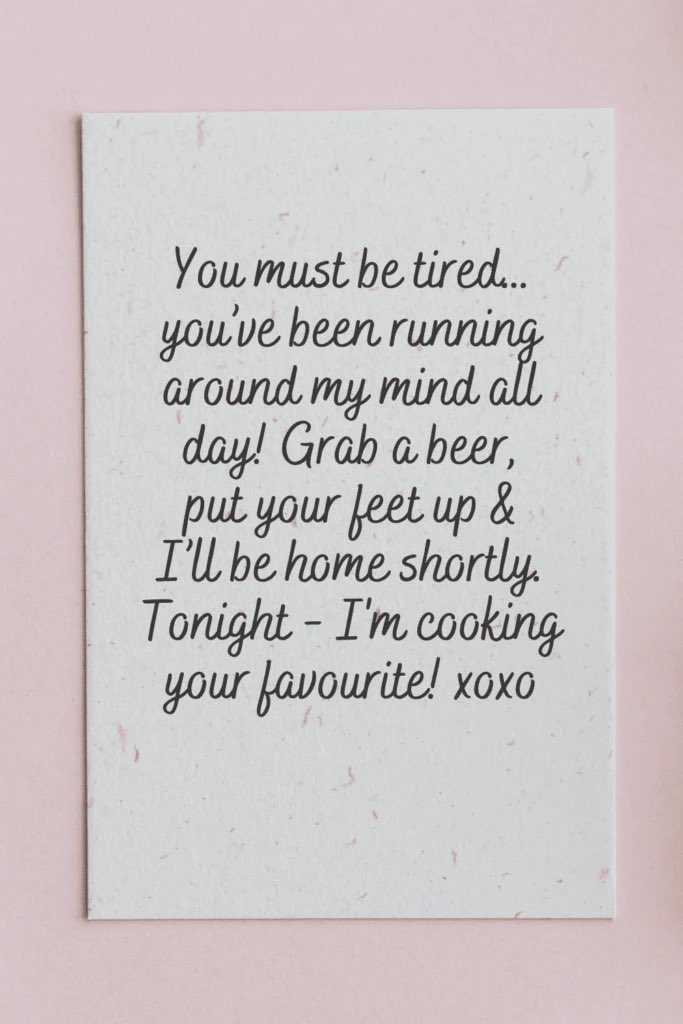 You must be tired...
you've been running
around my mind all
day! Grab a beer,
put your feet up &
I'll be home shortly.
Tonight - I'm cooking
your favourite! xoxo